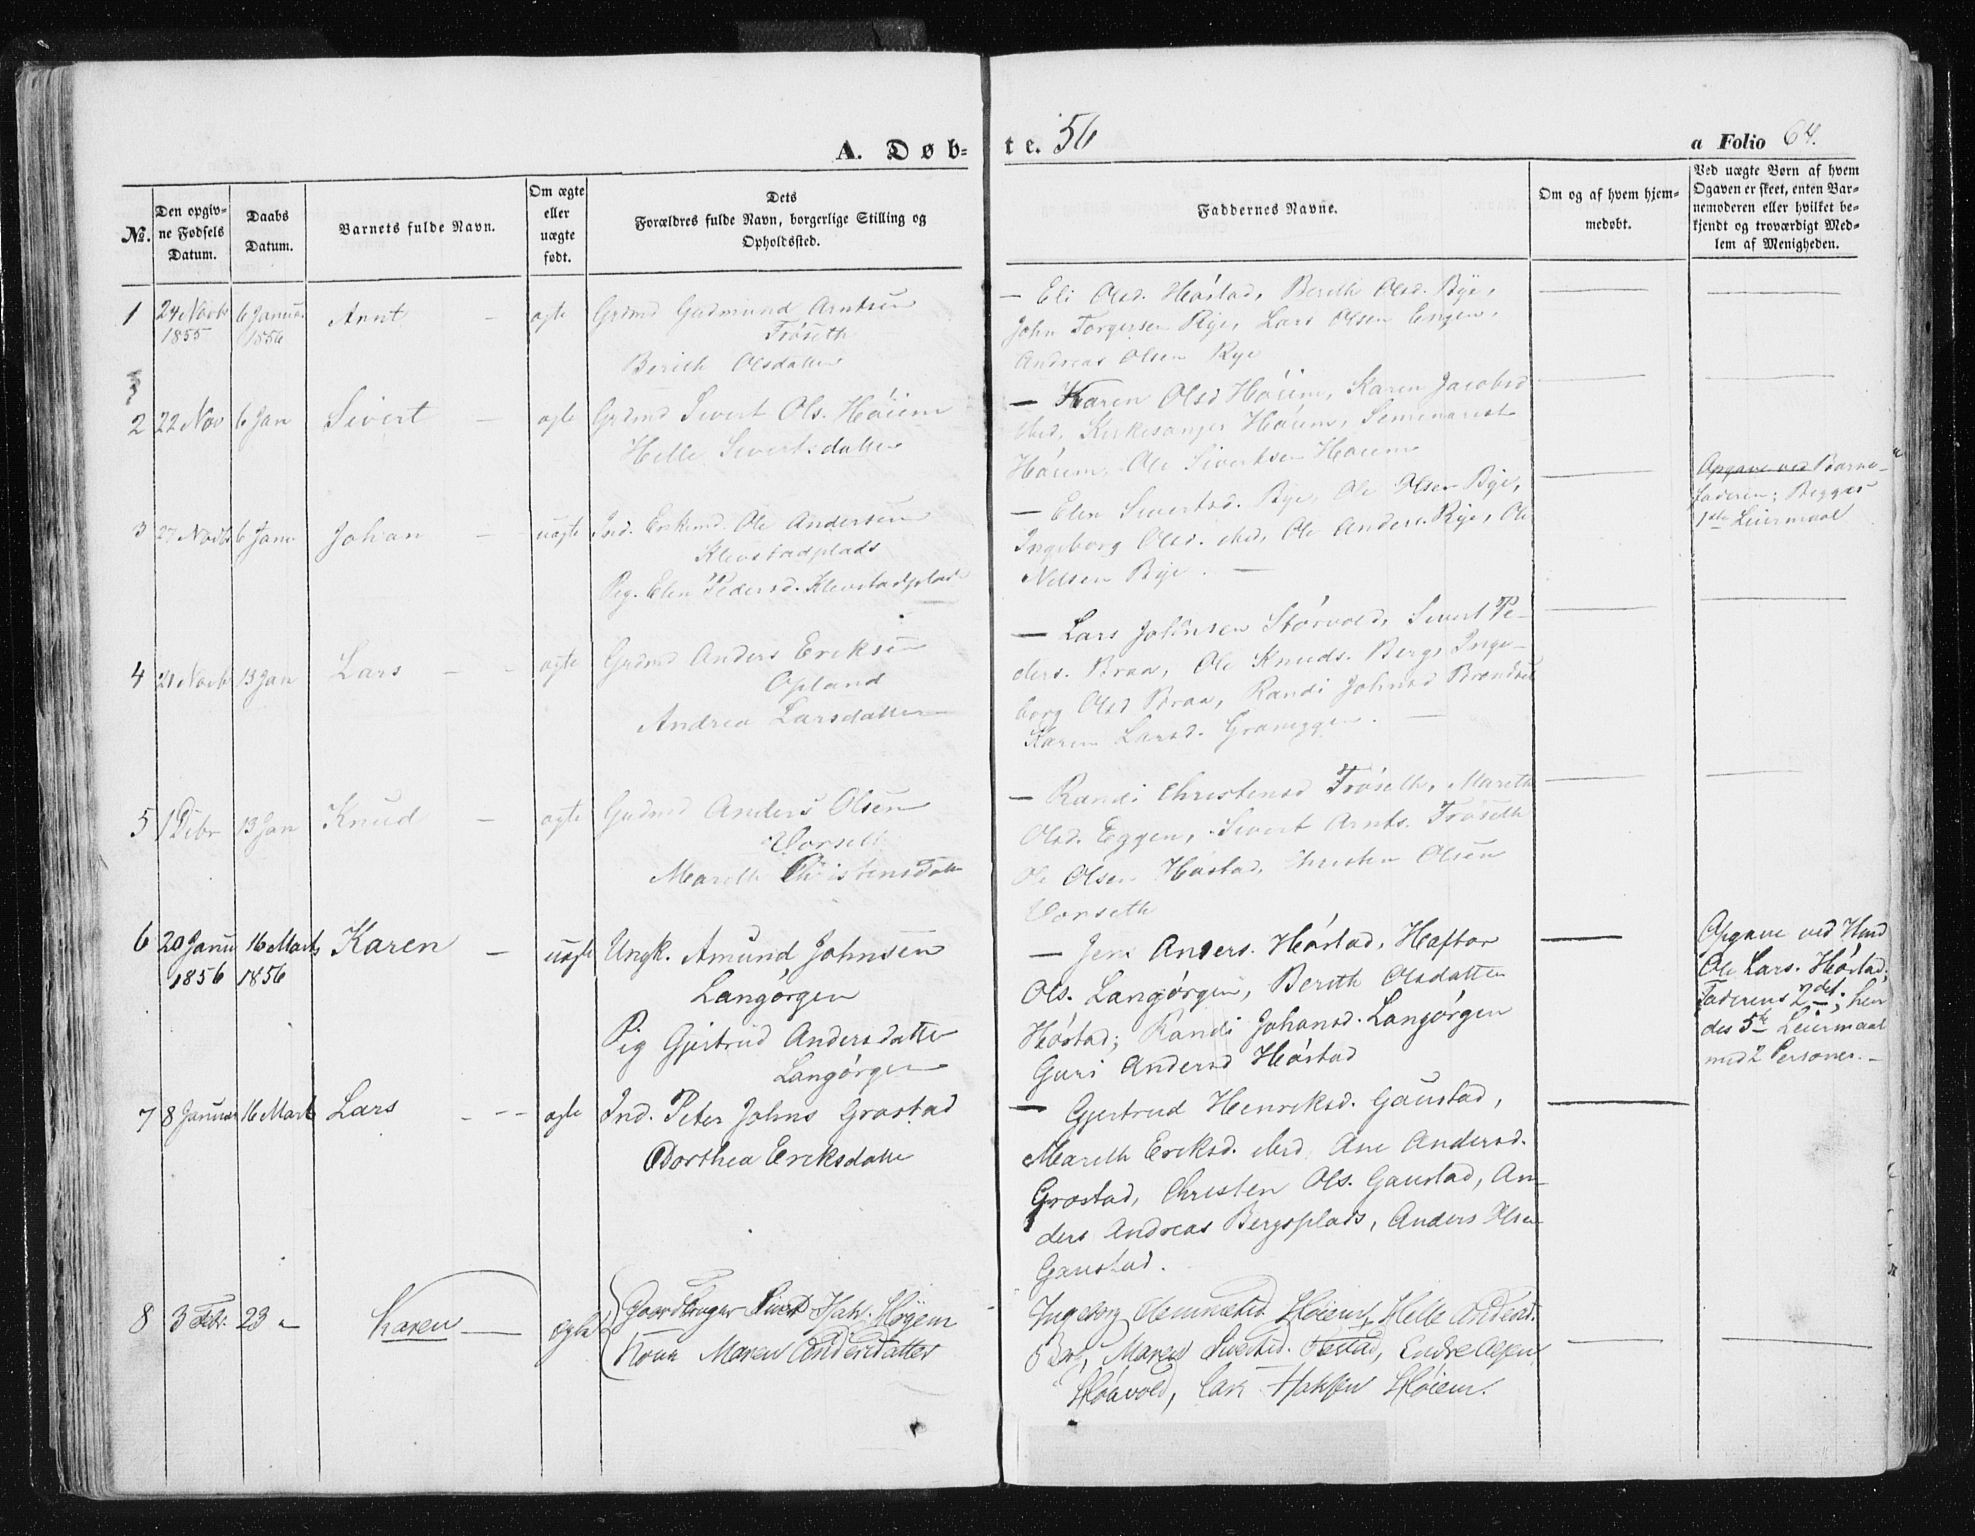 A. Døb-
te. 56
a Folio 64.
№.
Den opgiv-
ne Fødsels
Datum.
Daabs
Datum.
Barnets fulde Navn.
Om ægte
eller
uægte
født.
Dets
Forældres fulde Navn, borgerlige Stilling og
Opholdssted.
Faddernes Navne.
Om og af hvem hjem-
medøbt.
Ved uægte Børn af hvem
Opgaven er skeet, enten Bar-
nemoderen eller hvilket be-
kjendt og troværdigt Med-
lem af Menigheden.
1 24 Novbr 6 Januar Arnt — ægte Grdmd Gudmund Arntsen
1855 1856 Trøseth
Berith Olsdatter
— Eli Olsd. Høstad, Berith Olsd. Rye,
John Torgersen Rye, Lars Olsen Engen,
Andreas Olsen Rye
2 22 Nov 6 Jan Sivert — ægte Grdmd Sivert Ols. Høiem
Helle Sivertsdatter
— Karen Olsd Høiem, Karen Jacobsd
ibid, Kirkesanger Høiem, Seminarist
Høiem, Ole Sivertsen Høiem
3 27 Novbr 6 Janu Johan — uægte Ind. Enkemd. Ole Andersen
Klevstadplads
Pig. Elen Pedersd. Klevstadplads
— Elen Sivertsd. Rye, Ole Olsen Rye,
Ingeborg Olsd. ibid, Ole Anders. Rye, Ole
Nilsen Rye. —
Opgave ved Barne-
faderen; Begges
1ste Leiermaal
4 21 Novb 13 Jan Lars — ægte Grdmd Anders Eriksen
Opland
Andrea Larsdatter
— Lars Johnsen Storvold, Sivert Pe-
ders. Braa, Ole Knuds. Berg, Inge-
borg Olsd Braa, Randi Johnsd
Karen Larsd. Grameggen. —
5 1 Debr 13 Jan Knud — ægte Grdmd Anders Olsen
Vorseth
Mareth Christensdatter
— Randi Christensd Trøseth, Mareth
Olsd. Eggen, Sivert Arnts. Trøseth
Ole Olsen Høstad, Christen Olsen
Vorseth
6 20 Janu 16 Marts Karen — uægte Ungk. Amund Johnsen
1856 1856 Langørgen
Pig Gjertrud Andersdatter
Langørgen
— Jens Anders. Høstad, Haftor
Ols. Langørgen, Berith Olsdatter
Høstad; Randi Johansd. Langørgen
Guri Andersd Høstad
Opgave ved Hmd
Ole Lars. Høstad;
Faderens 2det; hen
des 5te Leiermaal
med 2 Personer. —
7 8 Januar 16 Marts Lars — ægte Ind. Peter Johns Grostad
Dorthea Eriksdatter
— Gjertrud Henriksd. Gaustad,
Mareth Eriksd. ibid, Ane Andersd.
Grostad, Christen Ols. Gaustad, An-
ders Andreas Bergsplads, Anders Olsen
Gaustad.
8 3 Febr. 23 — Karen — ægte Gaardbruger Sivert Høyem
Kone Maren Andersdatter
Ingeborg Høiem, Helle Andersd.
Maren Sivertsd. Endre Olsen
Lars Høiem.